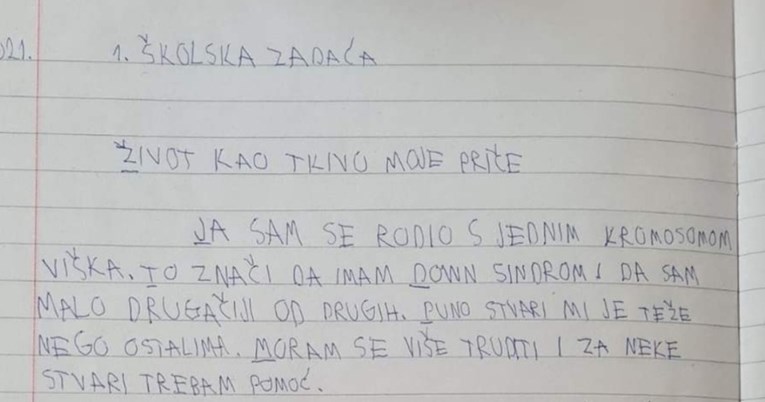 021.
1. ŠKOLSKA ZADAĆA
ŽIVOT KAO TKIVO MOJE PRIČE
JA SAM SE RODIO S JEDNIM KROMOSOMOM
VIŠKA. TO ZNAČI DA IMAM DOWN SINDROM I DA SAM
MALO DRUGAČIJI OD DRUGIH. PUNO STVARI MI JE TEŽE
NEGO OSTALIMA. MORAM SE VIŠE TRUDITI I ZA NEKE
STVARI TREBAM POMOĆ.